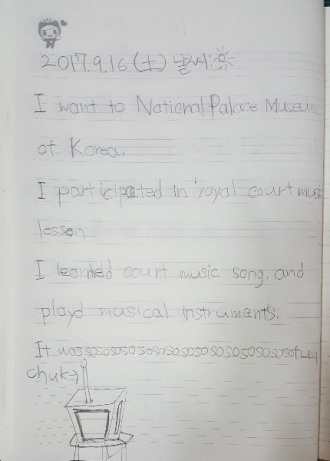 2017.9.16 (土) 날씨:
I want to National Palace Museu
of Korea.
I participated in royal court musi
lesson
I learned court music song, and
playd musical instruments.
It was sosososososososososososososo
chuk